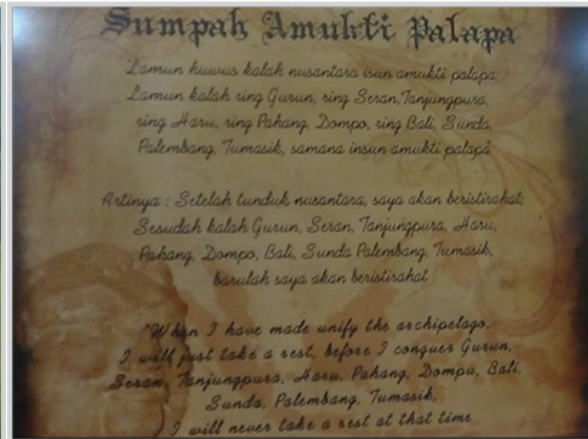 Sumpah Amukti Palapa
Lamun huwus kalah nusantara isun amukti palapa,
Lamun kalah ring Gurun, ring Seran, Tanjungpura,
ring Haru, ring Pahang, Dompo, ring Bali, Sunda,
Palembang, Tumasik, samana insun amukti palapa
Artinya : Setelah tunduk nusantara, saya akan beristirahat;
Sesudah kalah Gurun, Seran, Tanjungpura, Haru,
Pahang, Dompo, Bali, Sunda Palembang, Tumasik,
barulah saya akan beristirahat
"When I have made unify the archipelago.
I will just take a rest, before I conquer Gurun,
Seran, Tanjungpura, Haru, Pahang, Dompu, Bali,
Sunda, Palembang, Tumasik,
I will never take a rest at that time